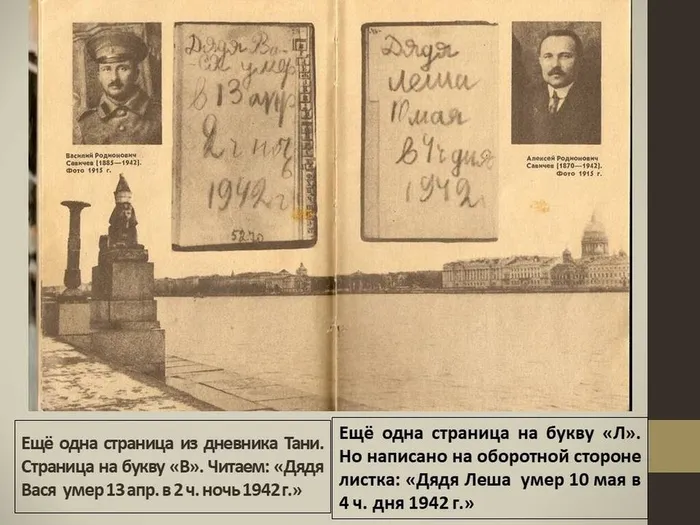 Дядя Ва-
ся умер
в 13 апр
2 ч ноч
в
1942 г
Дядя
Леша
10 мая
в 4 ч дня
1942
Василий Родионович
Савичев (1885—1942).
Фото 1915 г.
Алексей Родионович
Савичев (1870—1942).
Фото 1915 г.
Ещё одна страница из дневника Тани.
Страница на букву «В». Читаем: «Дядя
Вася умер 13 апр. в 2 ч. ночь 1942 г.»
Ещё одна страница на букву «Л».
Но написано на оборотной стороне
листка: «Дядя Леша умер 10 мая в
4 ч. дня 1942 г.»